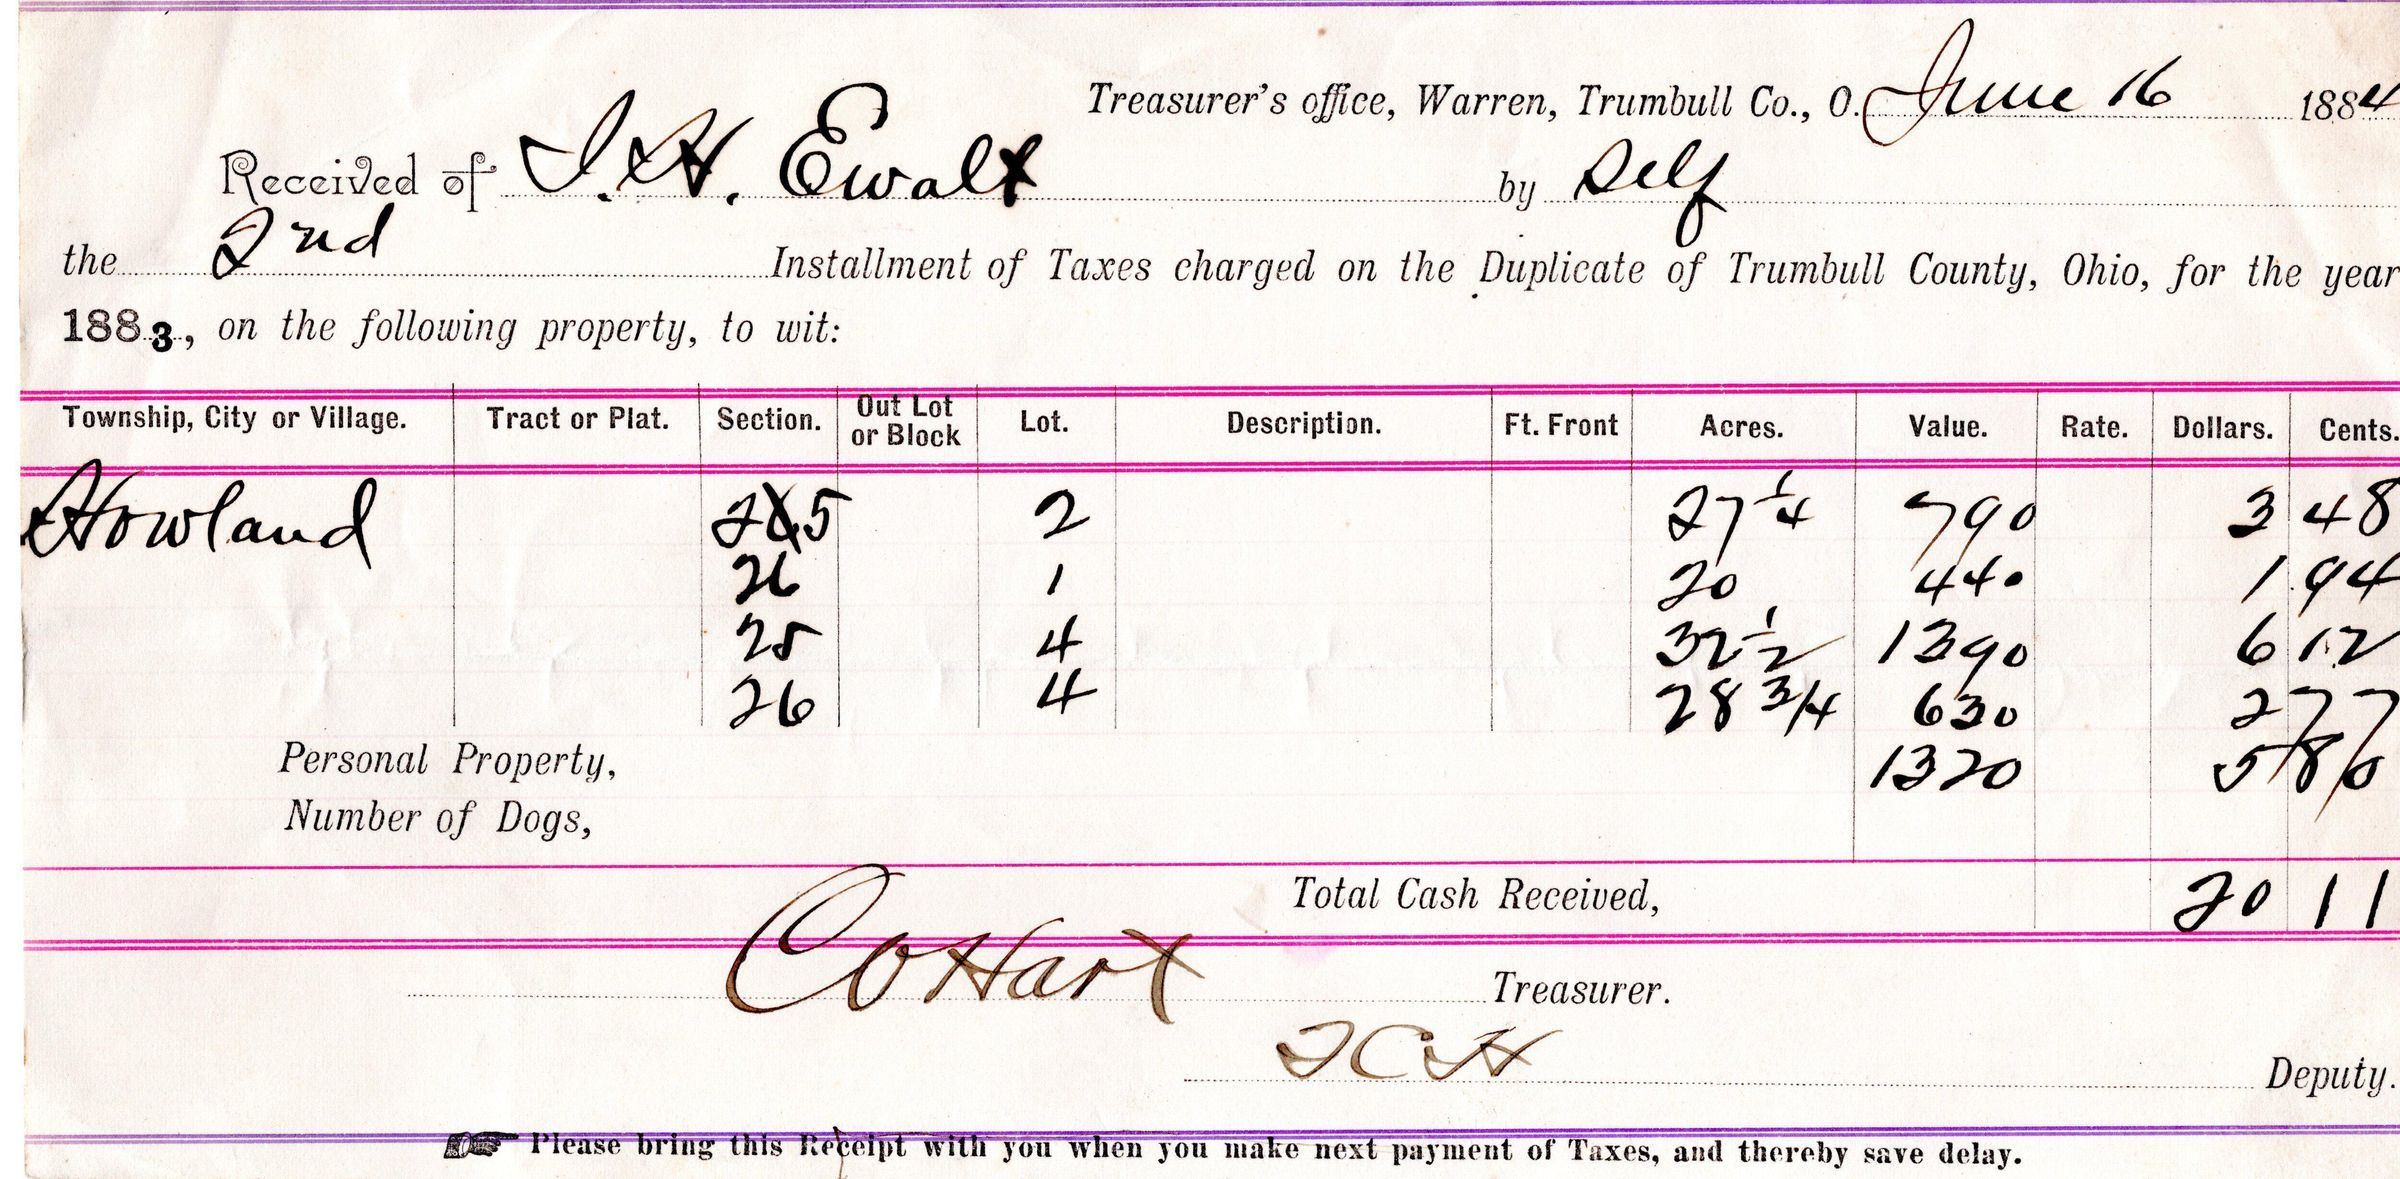 Treasurer's office, Warren, Trumbull Co., O. June 16 1884
Received of J. H. Ewalt by Self
the 2nd Installment of Taxes charged on the Duplicate of Trumbull County, Ohio, for the year
1883, on the following property, to wit:
Township, City or Village. Tract or Plat. Section. Out Lot or Block Lot. Description. Ft. Front Acres. Value. Rate. Dollars. Cents.
Howland 25 2 27 1/4 790 3 48
26 1 20 440 1 94
25 4 32 1/2 1390 6 12
26 4 28 3/4 630 2 77
Personal Property, 1320 5 80
Number of Dogs,
Total Cash Received, 20 11
C O Hart Treasurer.
Deputy.
Please bring this Receipt with you when you make next payment of Taxes, and thereby save delay.